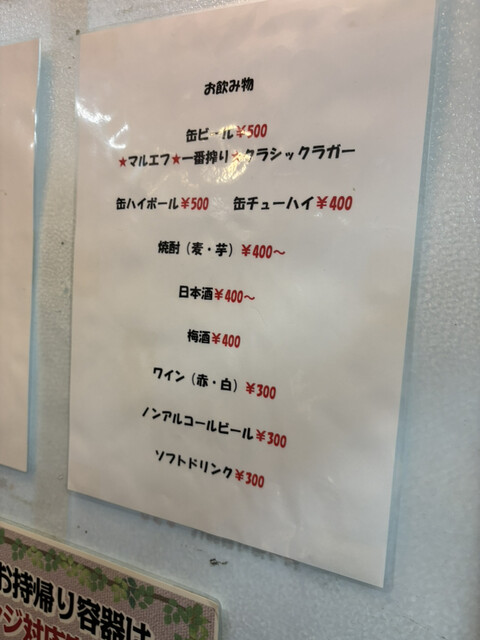 お飲み物
缶ビール¥500
★マルエフ★一番搾り★クラシックラガー
缶ハイボール¥500 缶チューハイ¥400
焼酎（麦・芋）¥400～
日本酒¥400～
梅酒¥400
ワイン（赤・白）¥300
ノンアルコールビール¥300
ソフトドリンク¥300
お持帰り容器は
ジ対応